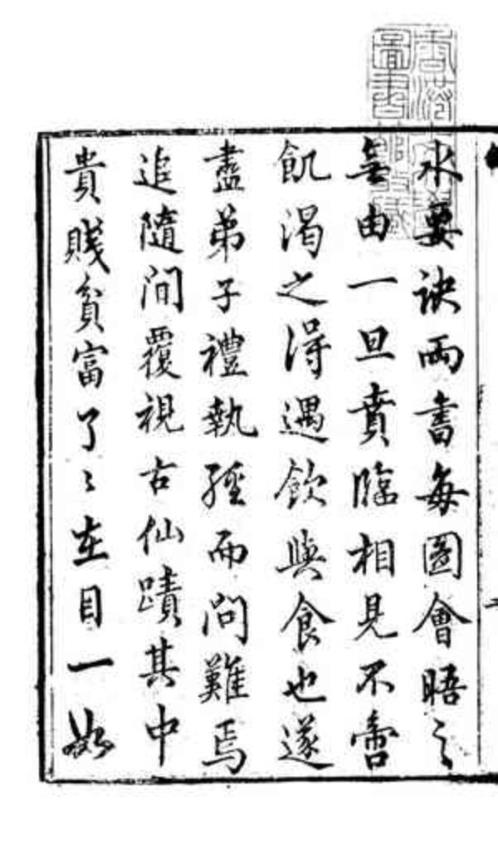 水要訣兩書每圖會晤之
無由一旦賁臨相見不啻
飢渴之得遇飲與食也遂
盡弟子禮執經而問難焉
追隨間覆視古仙蹟其中
貴賤貧富了〻在目一如